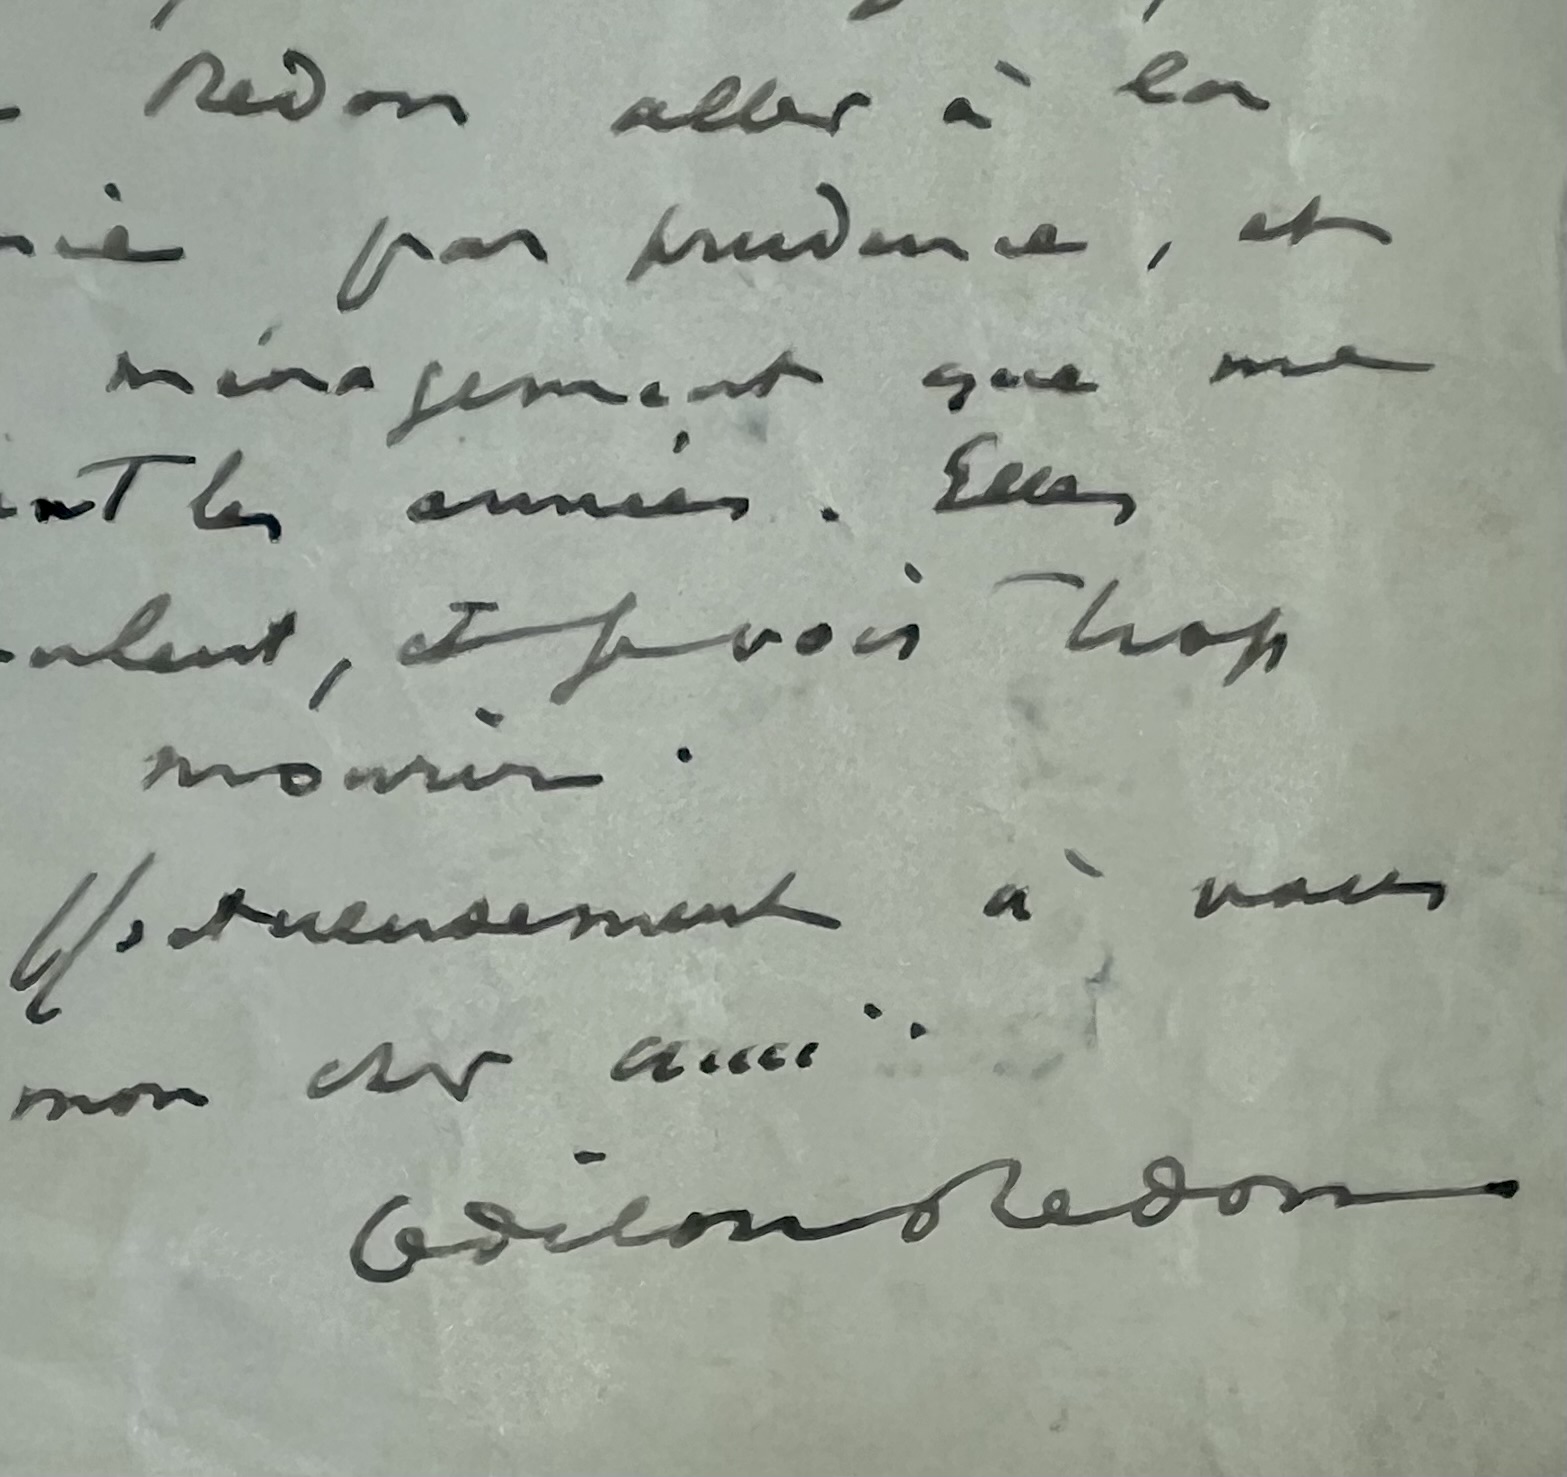 Redon aller à la
par prudence, et
ménagement que me
les années. Elles
et je vois trop
mourir.
Affectueusement à vous
mon cher ami.
Odilon Redon